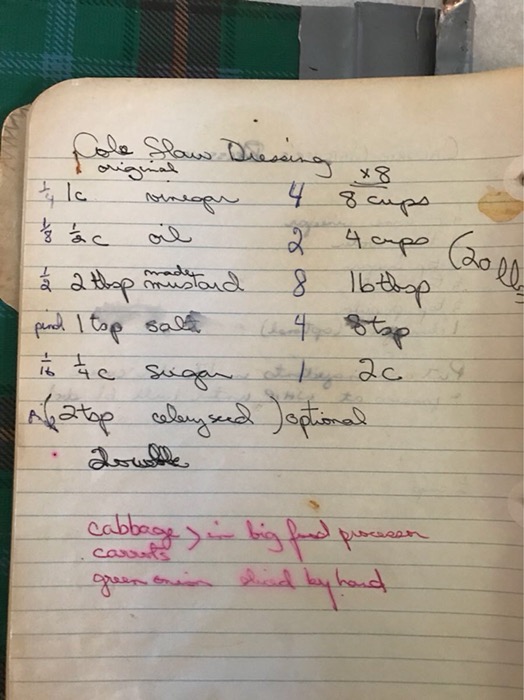 Cole Slaw Dressing
original x8
1/4 1c vinegar 4 8 cups
1/8 1/2 c oil 2 4 cups (20 lbs
1/2 2 tbsp made mustard 8 16 tbsp
1 tsp salt 4 8 tsp
1/16 1/4 c sugar 1 2c
(2 tsp celery seed) optional
double
cabbage > in big food processer
carrots
green onion sliced by hand